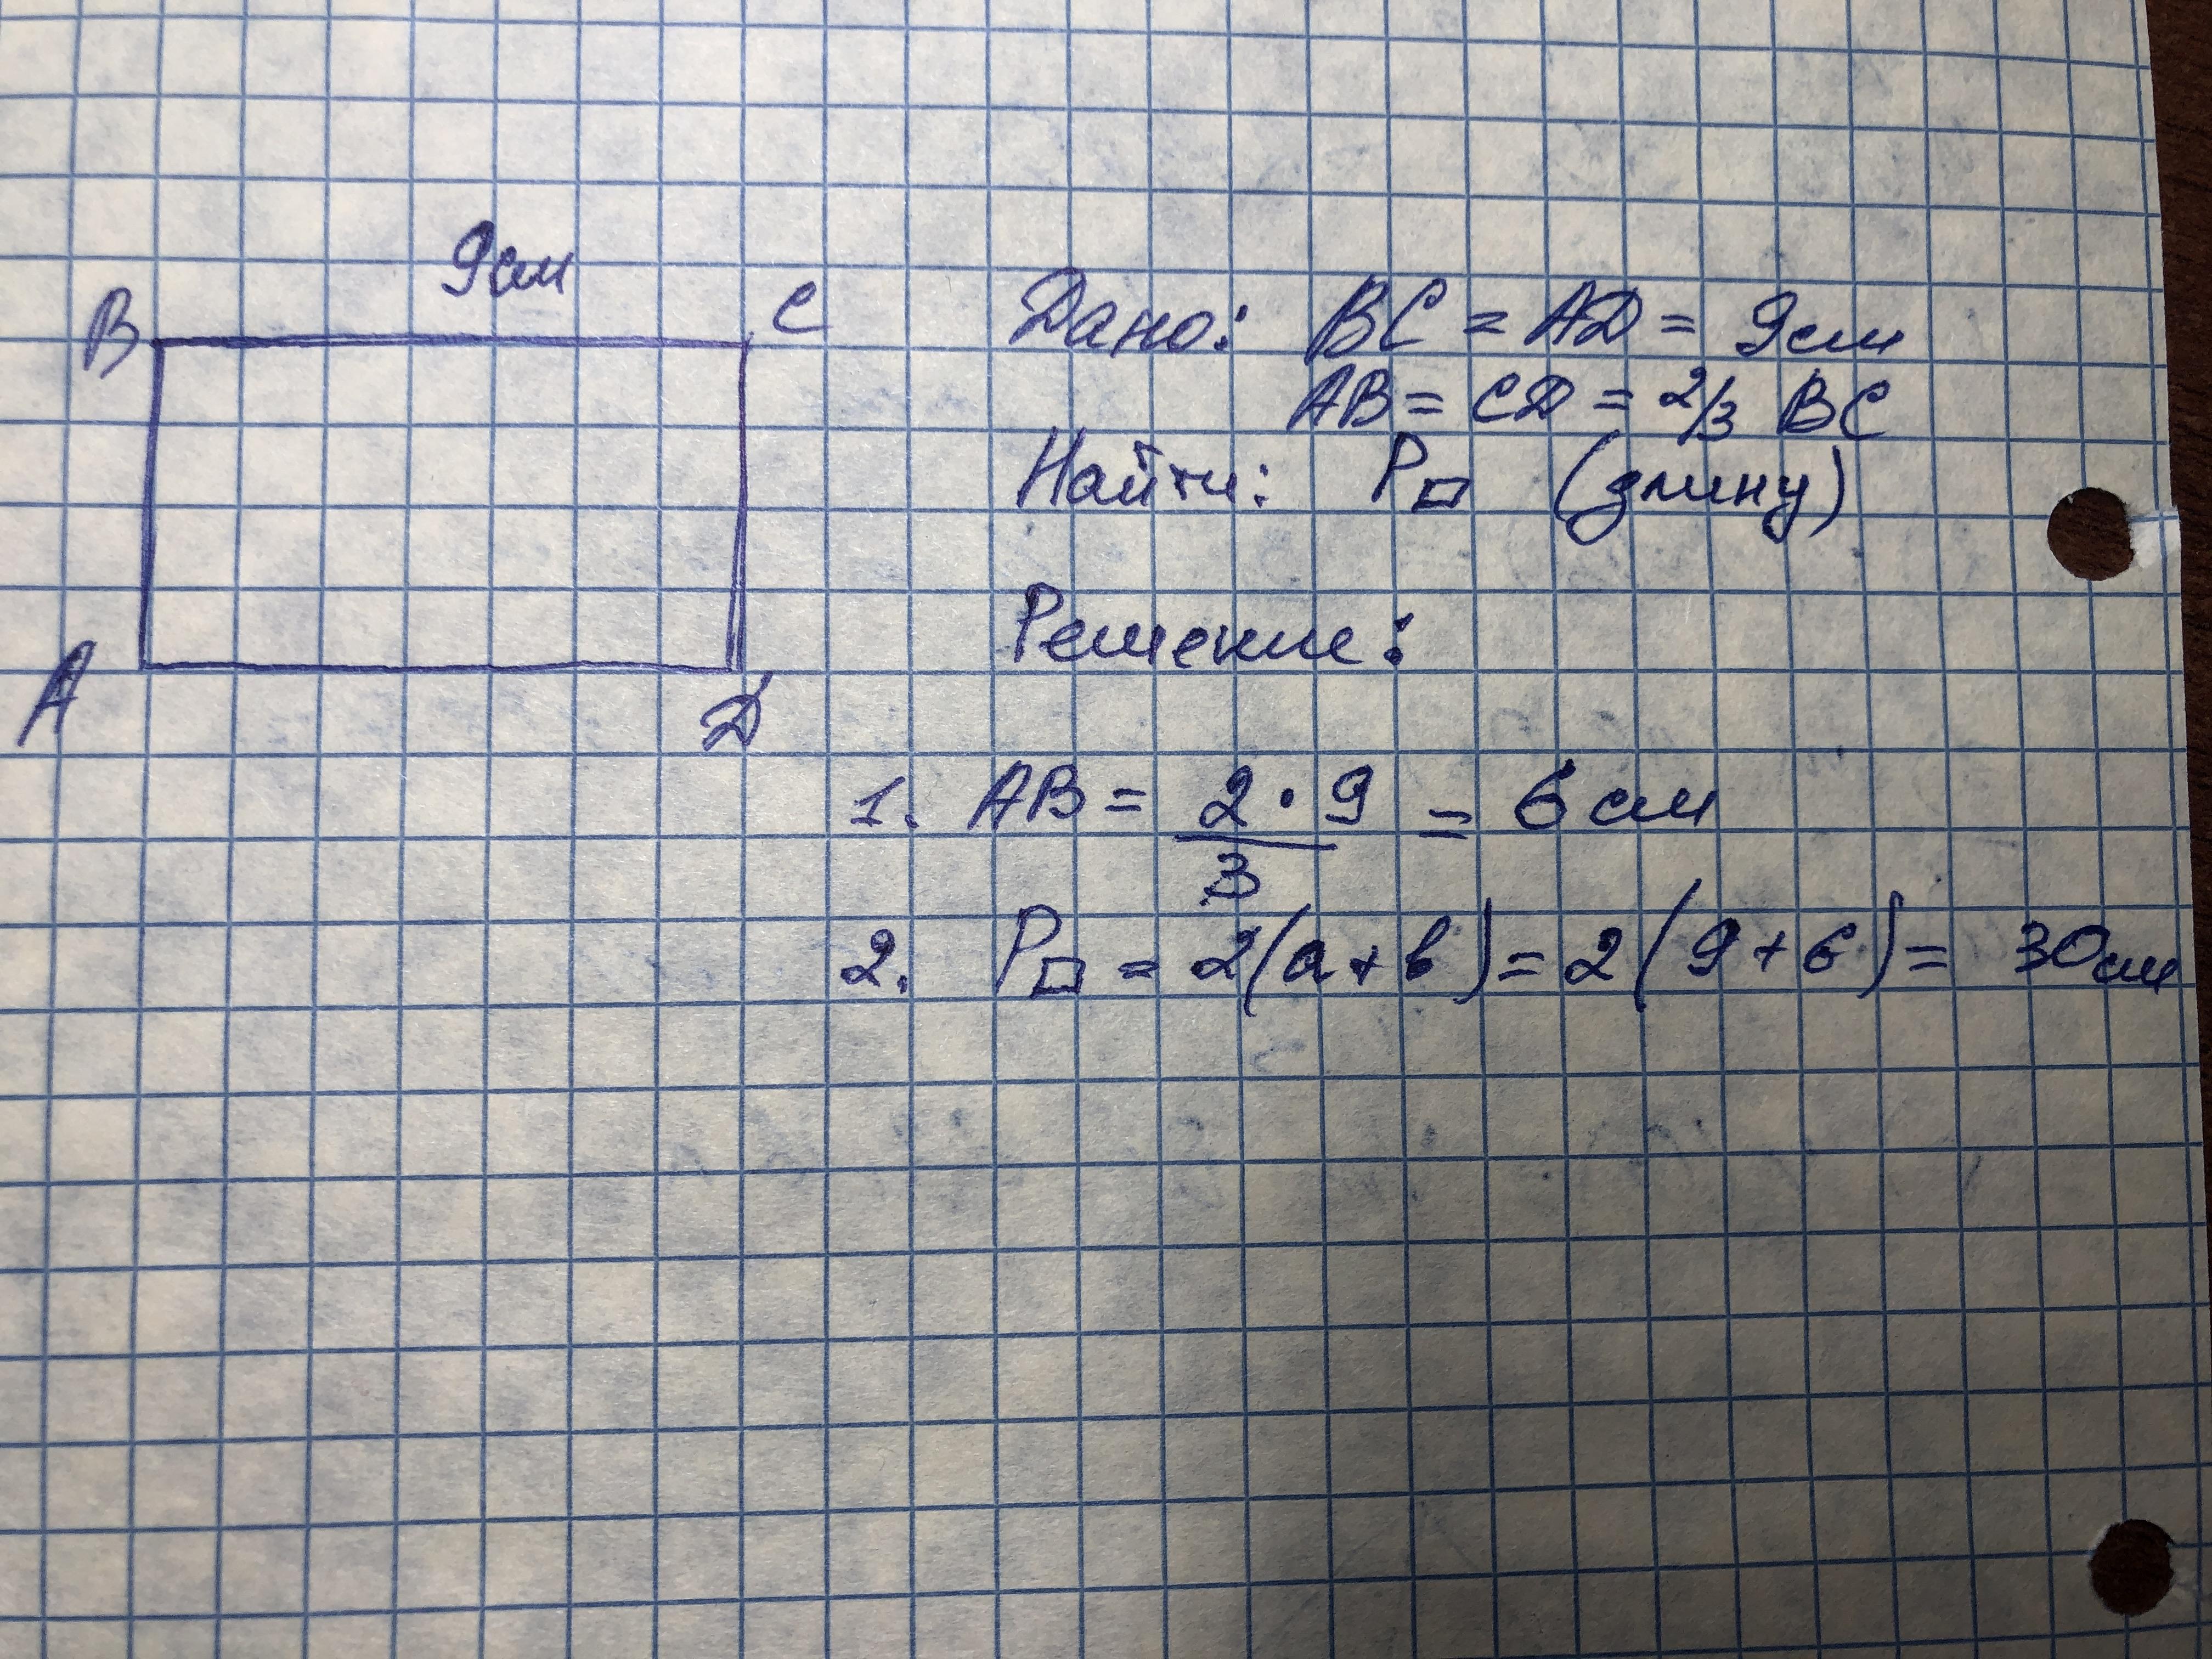 9см
B
C
A
D
Дано: BC = AD = 9см
AB = CD = 2/3 BC
Найти: P□ (длину)
Решение:
1. AB = 2·9/3 = 6 см
2. P□ = 2(a+b) = 2(9+6) = 30см